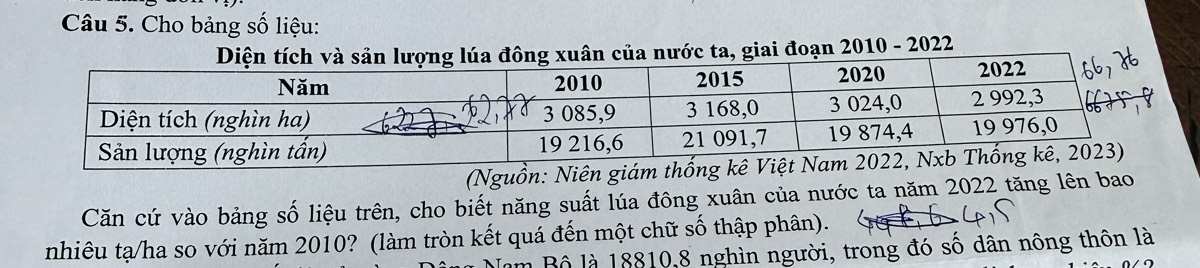 Câu 5. Cho bảng số liệu:
Diện tích và sản lượng lúa đông xuân của nước ta, giai đoạn 2010 - 2022
Năm 2010 2015 2020 2022 66,76
Diện tích (nghìn ha) 62,77 3 085,9 3 168,0 3 024,0 2 992,3 6675,8
Sản lượng (nghìn tấn) 19 216,6 21 091,7 19 874,4 19 976,0
(Nguồn: Niên giám thống kê Việt Nam 2022, Nxb Thống kê, 2023)
Căn cứ vào bảng số liệu trên, cho biết năng suất lúa đông xuân của nước ta năm 2022 tăng lên bao
nhiêu tạ/ha so với năm 2010? (làm tròn kết quả đến một chữ số thập phân). 4,5
Đông Nam Bộ là 18810,8 nghìn người, trong đó số dân nông thôn là